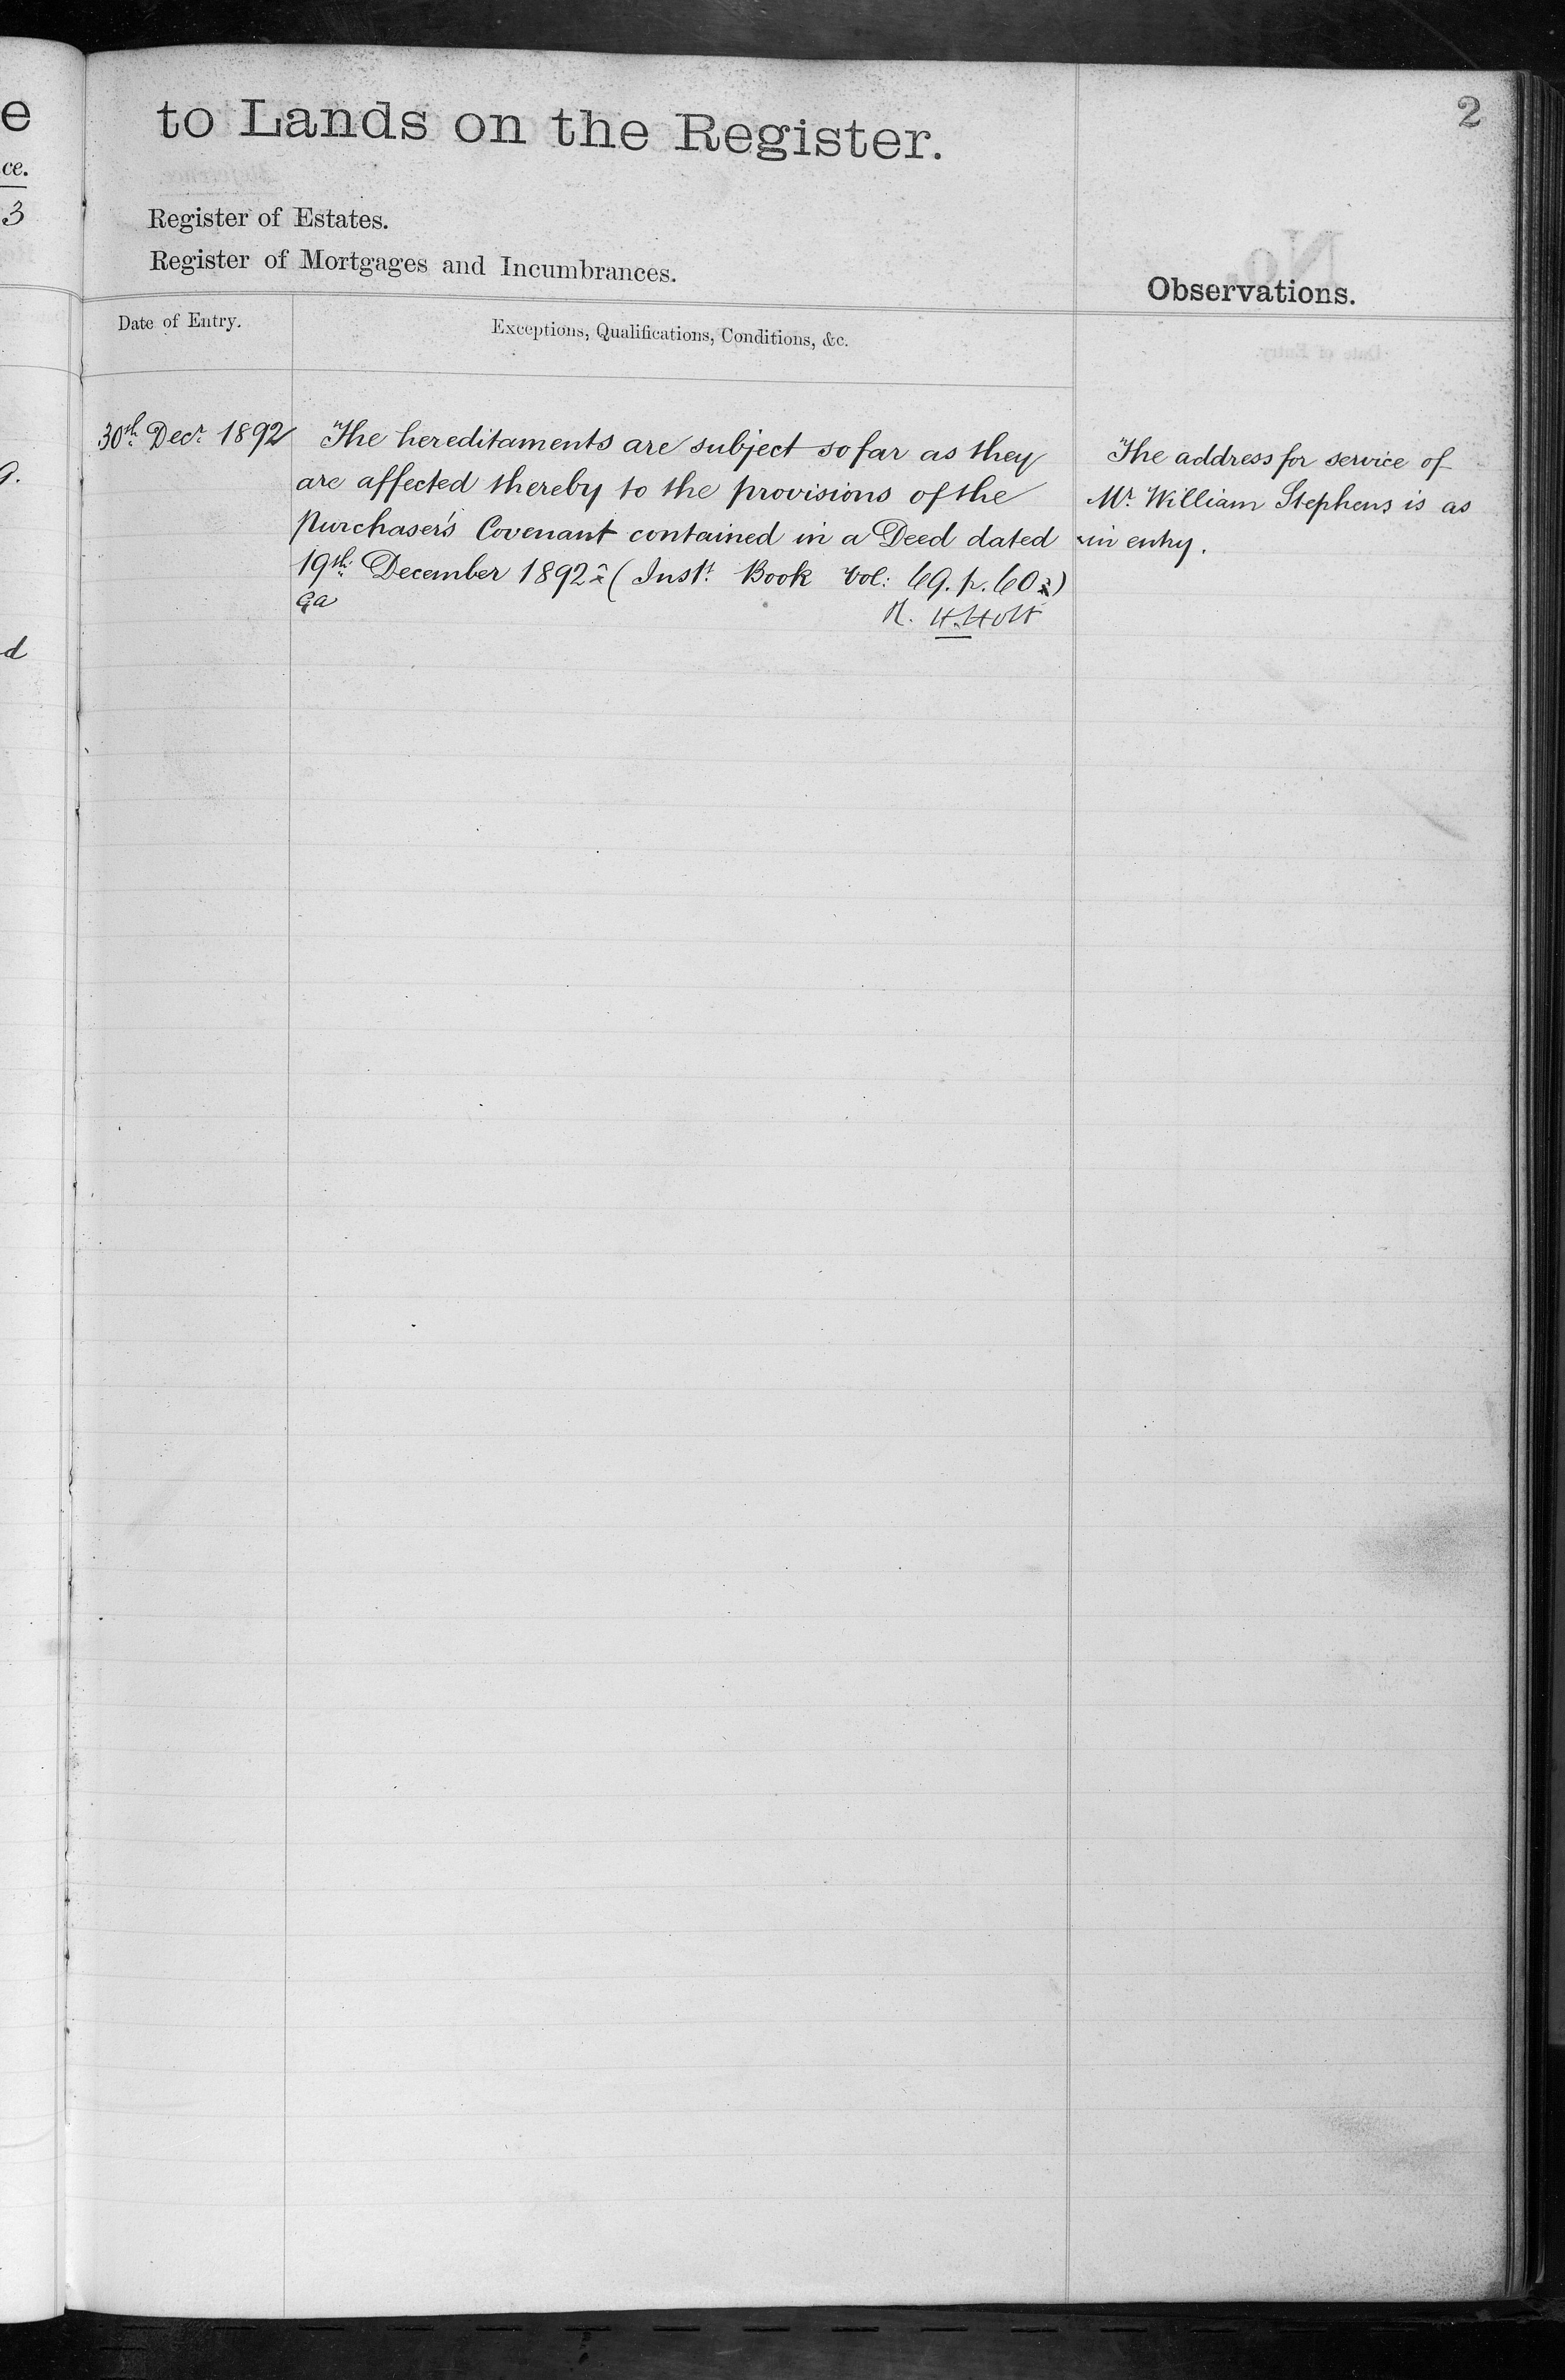 e
ce.
3
g.
d
2
to Lands on the Register.
Register of Estates.
Register of Mortgages and Incumbrances.
Observations.
Date of Entry.
Exceptions, Qualifications, Conditions, &c.
30th Decr. 1892
The hereditaments are subject so far as they
are affected thereby to the provisions of the
Purchaser's Covenant contained in a Deed dated
19th December 1892 (Inst. Book Vol: 69. p. 60)
Ga
H. Holt
The address for service of
Mr. William Stephens is as
in entry.